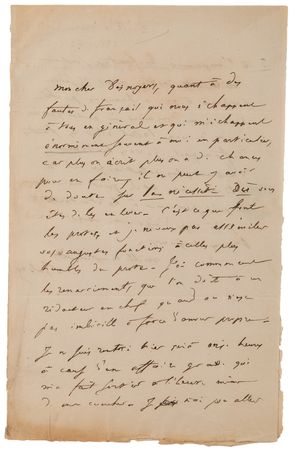 mon cher Desnoyers, quant à des
fautes de français qui nous échappent
à tous en général et qui m'échappent
énormément souvent à moi en particulier,
car plus on écrit plus on a de chances
pour en faire, il ne peut y avoir
de doute sur
êtes de les enlever. C'est ce que font
les protes, et je ne veux pas assimiler
vos augustes fonctions à celles plus
humbles du prote. J'ai
les remerciements que l'on doit à un
rédacteur en chef quand on n'est
pas imbécille à force d'amour propre.
Je ne suis rentré hier qu'à onze heures
à cause d'une affaire grave qui
m'a fait sortir à l'heure même
de mon coucher. Je n'ai pu aller